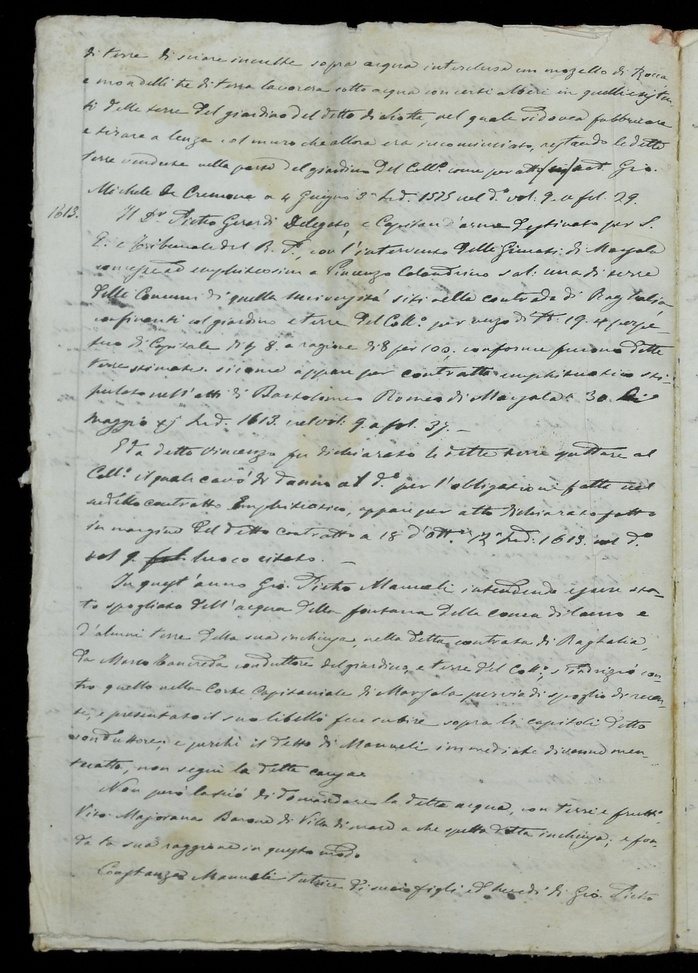 di terre di sciare inculte sopra acqua interclusa un mozzello di Rocca
e mondelli tre di terra lavorera sotto acqua con certi alberi in quelli existen
ti delle terre del giardino del detto di Sciotto, nel quale si dovea fabbricare
e tirare a lenza col muro che allora era incominciato, restando le dette
terre vendute nella parte del giardino del Coll.º come per atto in Not. Gio.
Michele de Cremona a 4 Giugno 3ª Ind. 1575 nel d.º vol. 9. a fol. 29.
1613. Il D.r Pietro Gerardi Delegato, e Capitan d'arme destinato per S.
E. e Tribunale del R. P., con l'intervento delli Giurati di Mascala
concesse ad emphiteosim a Vincenzo Calandrino sal: una di terre
delle Comuni di quella Università siti nella contrada di Raghalia
confinanti col giardino e terre del Coll.º per censo di 19. 4 perpe
tuo di Capitale di 8. a ragione di 8 per 100. conforme furono dette
terre stimate. siccome appare per contratto emphiteutico sti
pulato nell'atti di Bartolomeo Romeo di Mascala a 30.
Maggio xj Ind. 1613. nel vol. 9 a fol. 37. —
E da detto Vincenzo fu dichiarato le dette terre spettare al
Coll.º il quale cavò di danno al d.º per l'obligazione fatta nel
sudetto contratto Emphiteutico, appare per atto dichiarato fatto
in margine del detto contratto a 18 d'Ott.e 12ª Ind. 1613. nel d.º
vol 9. luoco citato. —
In quest'anno Gio. Pietro Mannoli intendendo essere sta
to spogliato dell'acqua della fontana della conca di lauro e
d'alcuni terre della sua inchiusa, nella detta contrata di Raghalia,
da Marco Tancreda conduttore del giardino, e terre del Coll.º, s'indrizzò con
tro quello nella Corte Capitaniale di Mascala, per via di spoglio di recen
te, e presentato il suo libello fece subire sopra li capitoli detto
conduttore; e perchè il detto di Mannoli immediate divenne men
tecatto, non seguì la detta causa.
Non però lasciò di domandare la detta acqua, con terre e frutti
Vito Majorana Barone di Villa di mare a che spetta detta inchiusa; e fon
da la sua raggione in questo modo
Constanza Mannoli tutrice di suoi figli ed heredi di Gio. Pietro